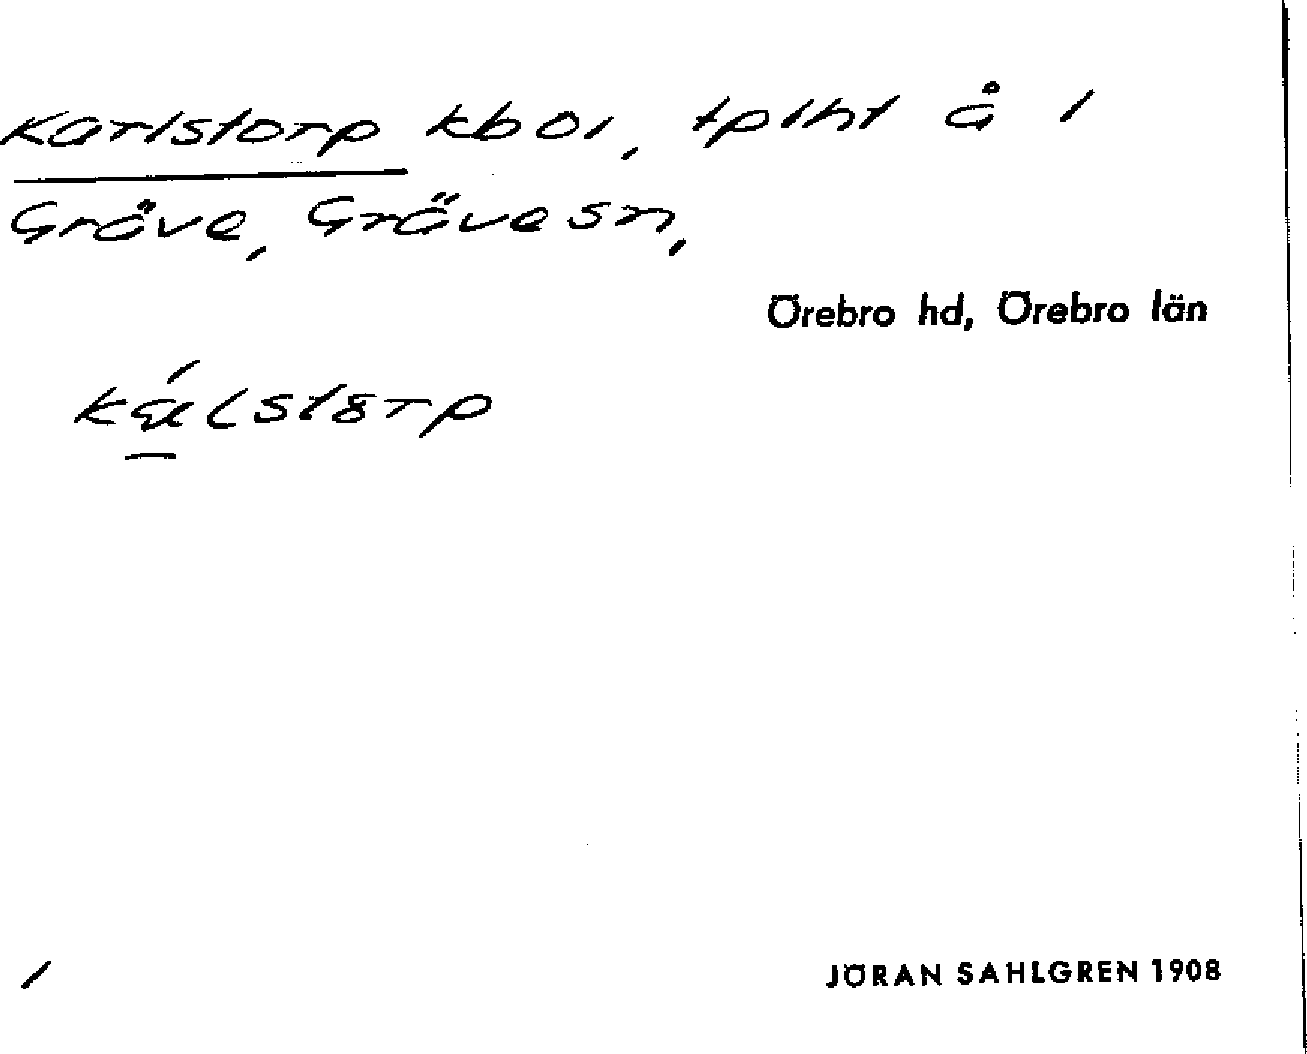 Karlstorp kboi, tplht å 1
Gräve, Gräve sn,
Örebro hd, Örebro län
JÖRAN SAHLGREN 1908